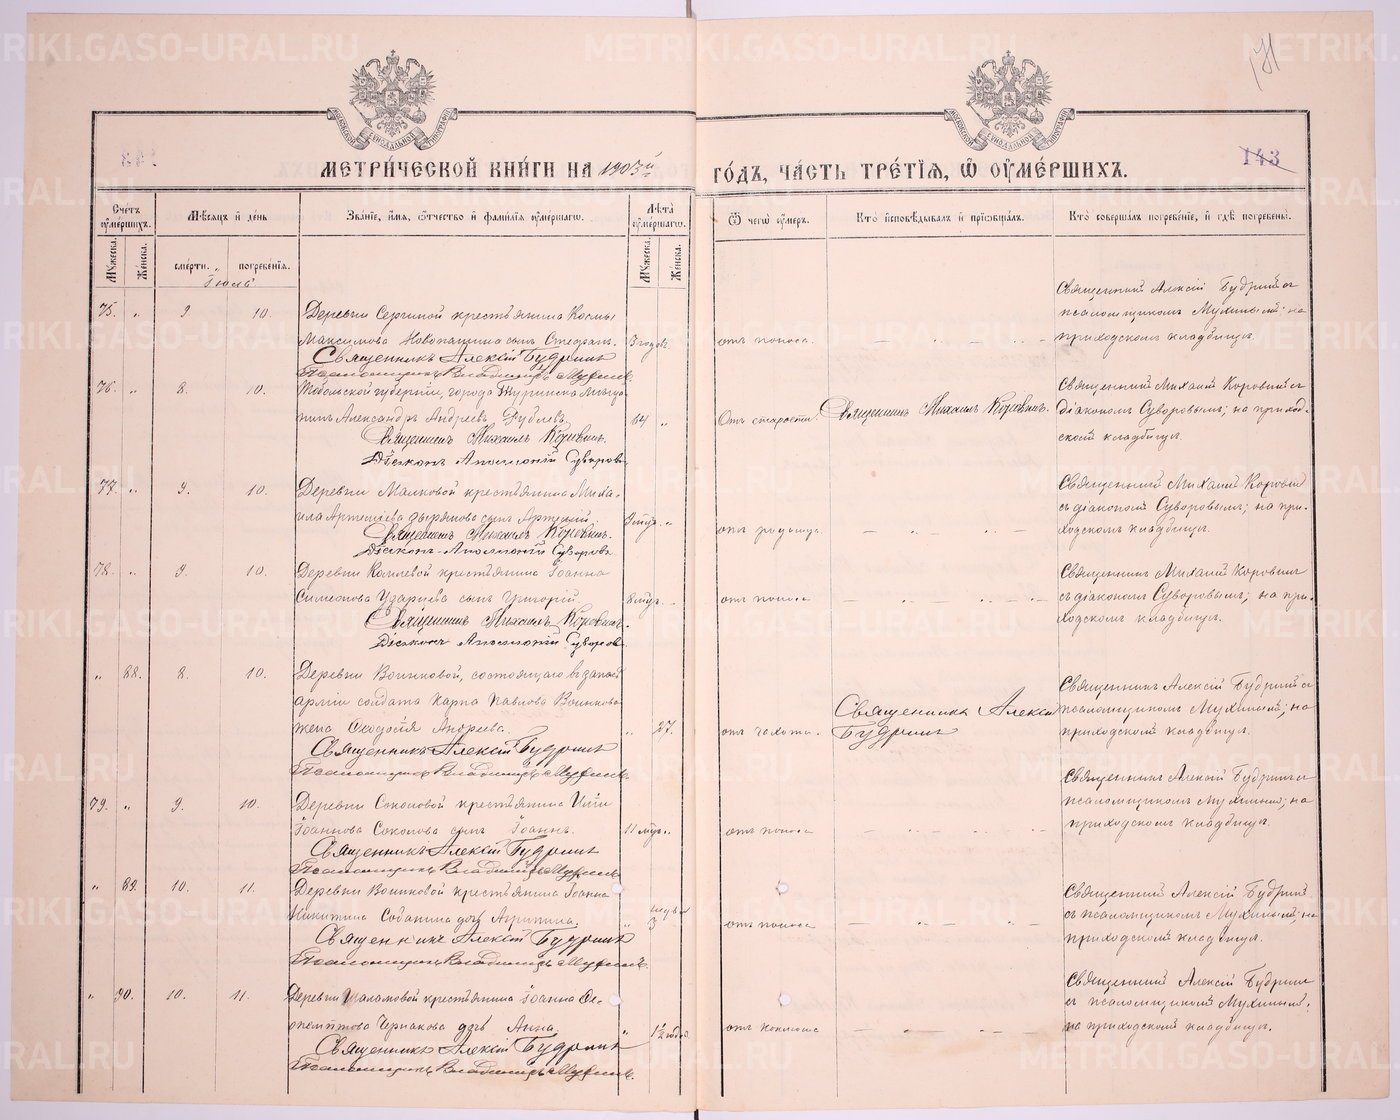 143
МЕТРИ́ЧЕСКОЙ КНИ́ГИ НА 1903й ГО́ДЪ, ЧА́СТЬ ТРЕ́ТІѦ, Ѿ ОУМЕ́РШИХЪ.
Сче́тъ оуме́ршихъ.
Мꙋ́жеска. Же́нска.
Мѣ́сѧцъ и҆ де́нь
сме́рти. погребе́нїѧ.
Зва́нїе, и҆́мѧ, ѻ҆́тчество и҆ фами́лїѧ оуме́ршагѡ.
Лѣ́та оуме́ршагѡ.
Мꙋ́жеска. Же́нска.
Ѿ чегѡ̀ оу́меръ.
Кто̀ и҆сповѣ́дывалъ и҆ прїѡбща́лъ.
Кто̀ соверша́лъ погребе́нїе, и҆ гдѣ̀ погребены̀.
Іюль
75. „ 9 10.
Деревни Сергиной крестьянина Космы
Максимова Новопашина сынъ Стефанъ.
Священникъ Алексій Будринъ
Псаломщикъ Владиміръ Мухинъ.
3 годовъ.
отъ поноса.
Священникъ Алексій Будринъ съ
псаломщикомъ Мухинымъ; на
приходскомъ кладбищѣ.
76. „ 8. 10.
Тобольской губерніи, города Туринска мѣща-
нинъ Александръ Андреевъ
Священникъ Михаилъ Коровинъ.
Діаконъ Аполлоній Суворовъ
64 „
Отъ старости.
Священникъ Михаилъ Коровинъ.
Священникъ Михаилъ Коровинъ съ
діакономъ Суворовымъ; на приход-
скомъ кладбищѣ.
77. „ 9. 10.
Деревни Малковой крестьянина Миха-
ила Артеміева Зырянова сынъ Артемій
Священникъ Михаилъ Коровинъ.
Діаконъ Аполлоній Суворовъ
отъ родимца.
Священникъ Михаилъ Коровинъ
съ діакономъ Суворовымъ; на при-
ходскомъ кладбищѣ.
78. „ 9. 10.
Деревни крестьянина Іоанна
Симеонова сынъ Григорій
Священникъ Михаилъ Коровинъ.
Діаконъ Аполлоній Суворовъ
8 мѣс.
отъ поноса
Священникъ Михаилъ Коровинъ
съ діакономъ Суворовымъ; на при-
ходскомъ кладбищѣ.
„ 88. 8. 10.
Деревни Воинковой, состоящаго въ запасѣ
арміи солдата Карпа Павлова Воинкова
жена Ѳеодосія Андреева.
Священникъ Алексій Будринъ
Псаломщикъ Владиміръ Мухинъ.
„ 27.
отъ чахотки.
Священникъ Алексій
Будринъ
Священникъ Алексій Будринъ съ
псаломщикомъ Мухинымъ; на
приходскомъ кладбищѣ.
79. „ 9. 10.
Деревни Соколовой крестьянина Иліи
Іоаннова Соколова сынъ Іоаннъ.
Священникъ Алексій Будринъ
Псаломщикъ Владиміръ Мухинъ
11 мѣс. „
отъ поноса
Священникъ Алексій Будринъ съ
псаломщикомъ Мухинымъ; на
приходскомъ кладбищѣ.
„ 89. 10. 11.
Деревни Воинковой крестьянина Іоанна
Никитина Собанина дочь Агрипина.
Священникъ Алексій Будринъ
Псаломщикъ Владиміръ Мухинъ.
3
отъ поноса
Священникъ Алексій Будринъ
съ псаломщикомъ Мухинымъ; на
приходскомъ кладбищѣ.
„ 90. 10. 11.
Деревни Шаламовой крестьянина Іоанна
Чернакова дочь Анна.
Священникъ Алексій Будринъ
Псаломщикъ Владиміръ Мухинъ.
1½ года
отъ коклюша
Священникъ Алексій Будринъ
съ псаломщикомъ Мухинымъ;
на приходскомъ кладбищѣ.
METRIKI.GASO-URAL.RU